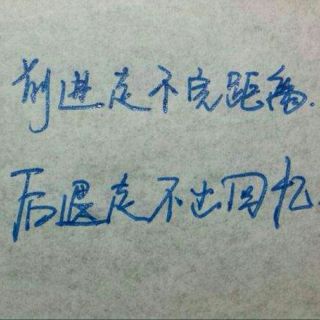 前进走不完距离.
后退走不出回忆.